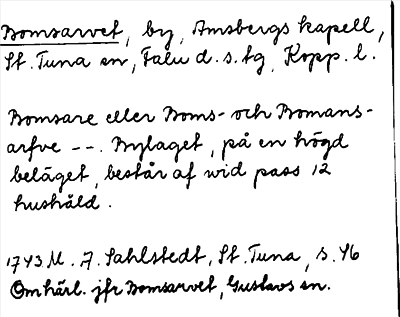 Bomsarvet, by, Amsbergs kapell,
St. Tuna sn, Falu d. s. tg, Kopp. l.
Bomsare eller Boms- och Bomans-
arfve --. Bylaget, på en högd
beläget, består af wid pass 12
hushåld.
1743 M. A. Sahlstedt, St. Tuna, s. 46
Om härl. jfr Bomsarvet, Gustavs sn.